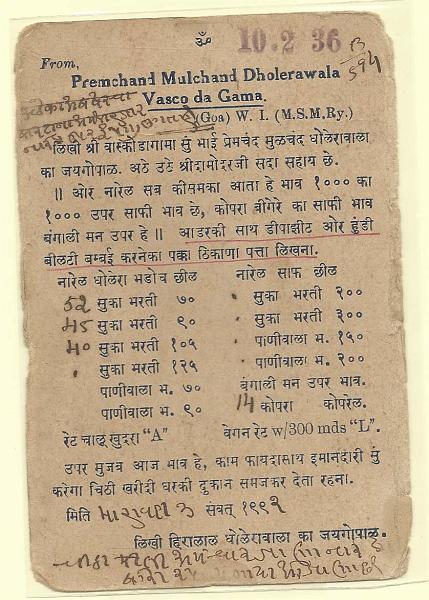 ॐ
10.2 36
From,
Premchand Mulchand Dholerawala
Vasco da Gama.
(Goa) W. I. (M.S.M,Ry.)
लिखी श्री वास्कोडागामा सुं भाई प्रेमचंद मुळचंद धोलेरावाला
का जयगोपाळ. अठे उठे श्रीदामोदरजी सदा सहाय छे.
॥ ओर नारेल सब कीसमका आता हे भाव १००० का
१००० उपर साफी भाव छे, कोपरा वीगेरे का साफी भाव
बंगाली मन उपर हे ॥ आडरकी साथ डीपाझीट ओर हुंडी
बीलटी बम्बई करनेका पक्का ठिकाणा पत्ता लिखना.
नारेल धोलेरा भडोच छील नारेल साफ छील
52 सुका भरती ७० सुका भरती २००
45 सुका भरती ९० सुका भरती ३००
40 सुका भरती १०५ पाणीवाला भ. १५०
सुका भरती १२५ पाणीवाला भ. २००
पाणीवाला भ. ७० बंगाली मन उपर भाव.
पाणीवाला भ. ९० 14 कोपरा कोपरेल.
रेट चाळू खुदरा "A" वेगन रेट w/300 mds "L".
उपर मुजब आज भाव हे, काम फायदासाथ इमानदारी सुं
करेगा चिठी खरीदी घरकी दुकान समजकर देता रहना.
मिति संवत् १९९२
लिखी हिरालाल धोलेरावाला का जयगोपाळ.